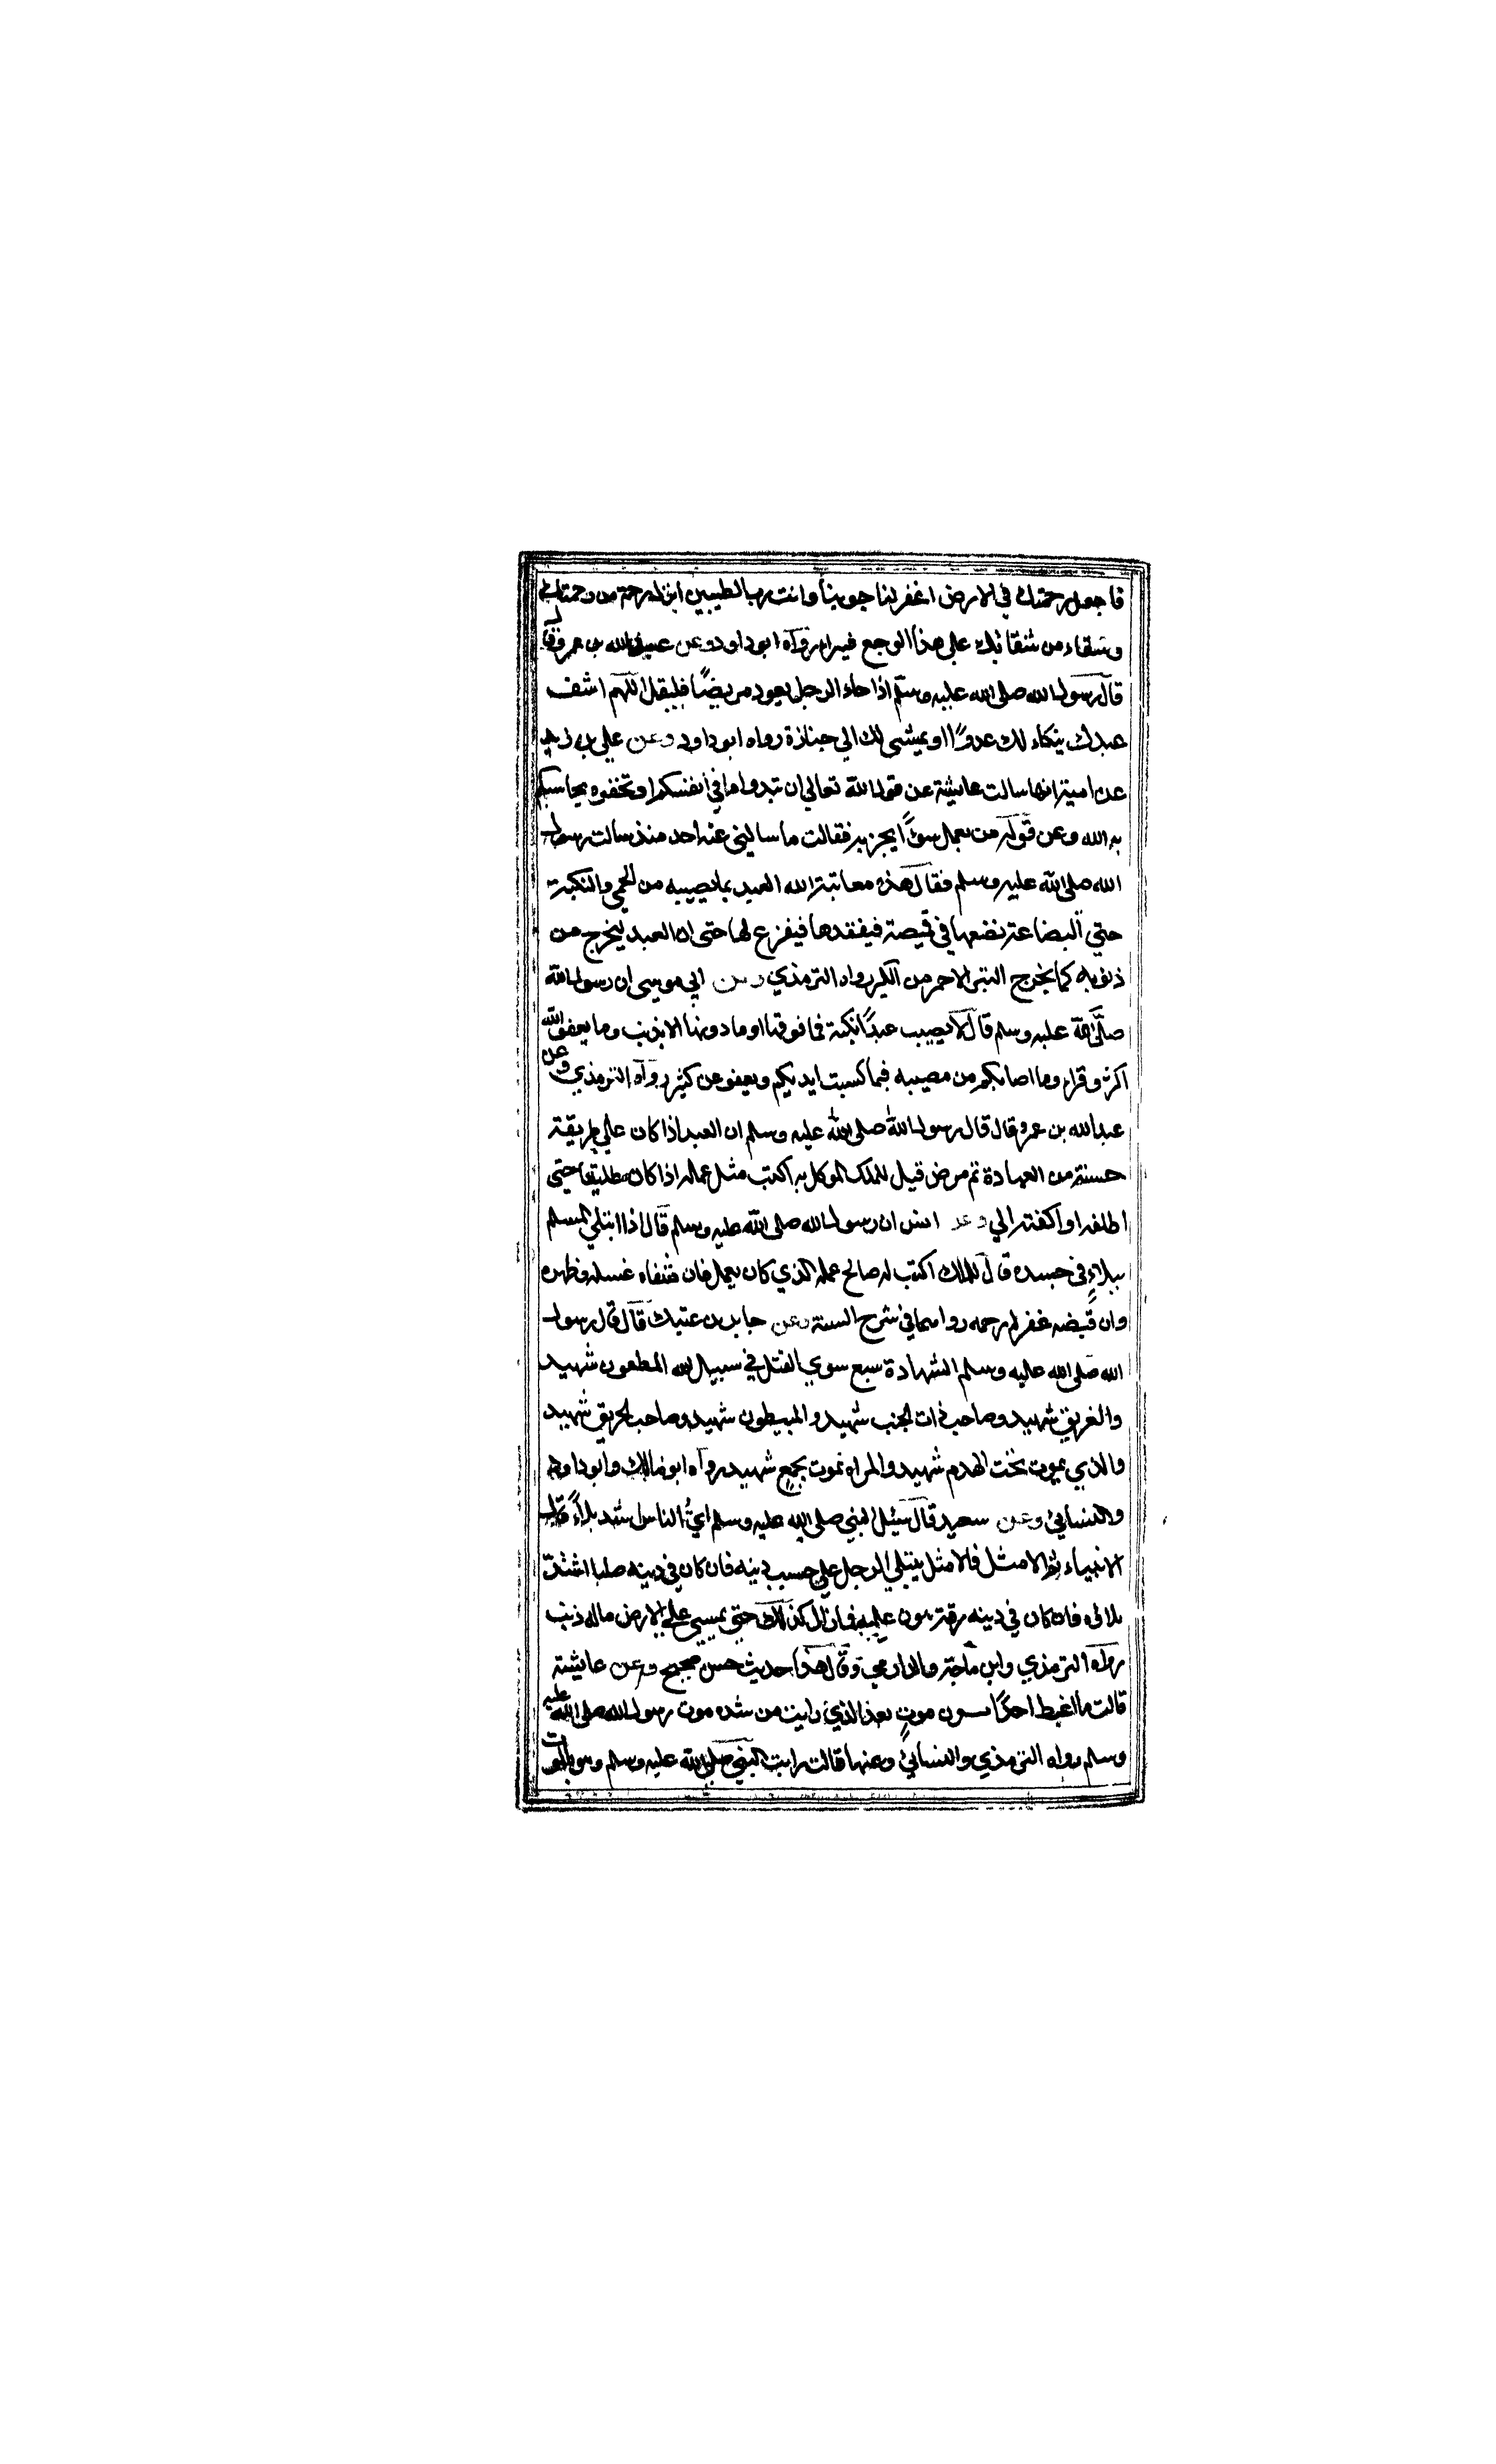 فاجعل رحمتك في الارض اغفر لنا حوبنا وانت رب الطيبين انزل رحمة من رحمتك
وشفاء من شفائك علي هذا الوجع فيبرا رواه ابو داود وعن عبد الله بن عمرو قال
قال رسول الله صلى الله عليه وسلم اذا جاء الرجل يعود مريضًا فليقل اللهم اشف
عبدك ينكاء لك عدوًا او يمشى لك الي جنازة رواه ابو داود وعن علي بن زيد
عن امية انها سالت عايشة عن قول الله تعالى ان تبدوا ما في أنفسكم او تخفوه يحاسبكم
به الله وعن قوله من يعمل سوًا يجز به فقالت ما سالنى عنه احد منذ سالت رسول
الله صلى الله عليه وسلم فقال هذه معاتبة الله العبد بما يصيبه من الحمى والنكبة
حتي البضاعة يضعها في قميصه فيفقدها فيفزع لها حتى ان العبد ليخرج من
ذنوبه كما يخرج التبر الاحمر من الكير رواه الترمذي وعن ابي موسى ان رسول الله
صلى الله عليه وسلم قال لا يصيب عبدًا نكبة فما فوقها او ما دونها الا بذنب وما يعفو الله
اكثر وقرا وما اصابكم من مصيبه فبما كسبت ايديكم ويعفو عن كثير رواه الترمذي وعن
عبد الله بن عمرو قال قال رسول الله صلى الله عليه وسلم ان العبد اذا كان علي طريقة
حسنة من العبادة ثم مرض قيل للملك الموكل به اكتب مثل عمله اذا كان طليقا حتى
اطلقه او اكفته الي وعن انس ان رسول الله صلى الله عليه وسلم قال اذا ابتلي المسلم
ببلاءٍ في جسده قال للملك اكتب له صالح عمله الذي كان يعمل فان شفاه غسله وطهره
وان قبضه غفر له ورحمه رواهما في شرح السنة وعن جابر بن عتيك قال قال رسول
الله صلى الله عليه وسلم الشهادة سبع سوي القتل في سبيل الله المطعون شهيد
والغريق شهيد وصاحب ذات الجنب شهيد والمبطون شهيد وصاحب الحريق شهيد
والذي يموت تحت الهدم شهيد والمراه تموت بجمعٍ شهيد رواه ابو مالك وابو داود
والنسائي وعن سعيد قال سئل النبي صلى الله عليه وسلم ايُّ الناس اشد بلاءً قال
الانبياء ثم الامثل فالامثل يبتلي الرجل علي حسب دينه فان كان في دينه صلبا اشتد
بلائه فان كان في دينه رقة هون عليه فما زال كذلك حتى يمسي علي الارض ماله ذنب
رواه الترمذي وابن ماجة والدارمي وقال هذا حديث حسن صحيح وعن عايشة
قالت ما اغبط احدًا بهون موتٍ بعد الذي رايت من شده موت رسول الله صلى الله عليه
وسلم رواه الترمذي والنسائي وعنها قالت رايت النبي صلى الله عليه وسلم وهو بالموت